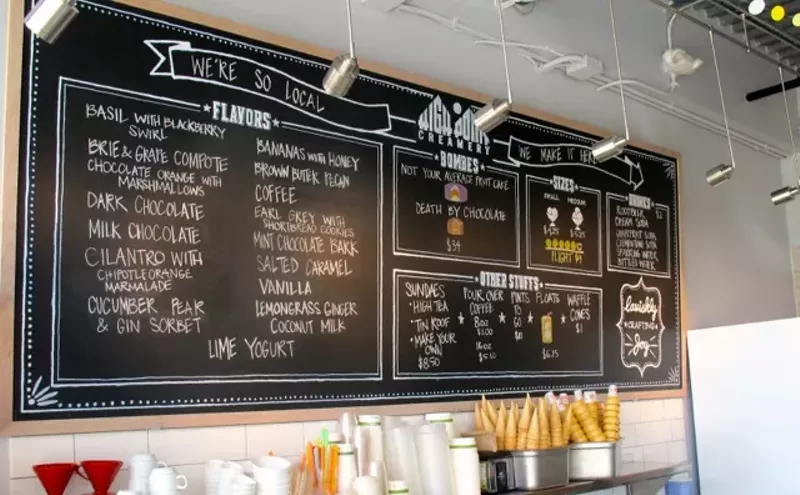 WE'RE SO LOCAL
CREAMERY
WE MAKE IT HERE
★FLAVORS★
BASIL WITH BLACKBERRY
SWIRL
BRIE & GRAPE COMPOTE
CHOCOLATE ORANGE WITH
MARSHMALLOWS
DARK CHOCOLATE
MILK CHOCOLATE
CILANTRO WITH
CHIPOTLE ORANGE
MARMALADE
CUCUMBER PEAR
& GIN SORBET
BANANAS WITH HONEY
BROWN BUTTER PECAN
COFFEE
EARL GREY WITH
SHORTBREAD COOKIES
MINT CHOCOLATE BARK
SALTED CARAMEL
VANILLA
LEMONGRASS GINGER
COCONUT MILK
LIME YOGURT
★BOMBES★
NOT YOUR AVERAGE FRUIT CAKE
DEATH BY CHOCOLATE
$34
★SIZES★
SMALL
MEDIUM
FLIGHT
★DRINKS★
ROOTBEER
CREAM SODA
GRAPEFRUIT SODA
CLEMENTINE SODA
SPARKLING WATER
BOTTLED WATER
OTHER STUFFS
SUNDAES
• HIGH TEA
• TIN ROOF
• MAKE YOUR
OWN
$8.50
★
POUR OVER
COFFEE
8oz
16oz
★
PINTS
TO
GO
★
FLOATS
$6.75
★
WAFFLE
CONES
$1
Lavishly
★CRAFTING★
Joy